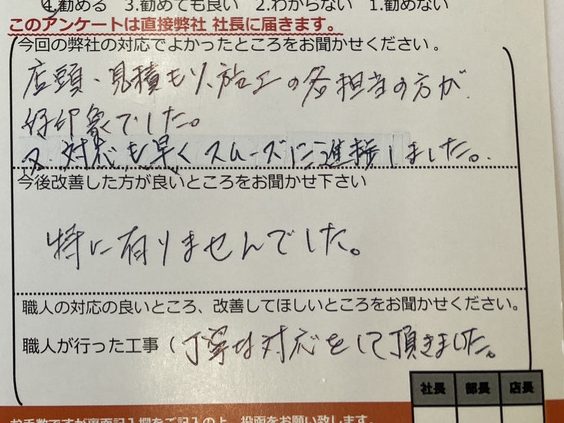 4.勧める 3.勧めても良い 2.わからない 1.勧めない
このアンケートは直接弊社 社長に届きます。
今回の弊社の対応でよかったところをお聞かせください。
店頭、見積もり、施工の各担当の方が
好印象でした。
又、対応も早くスムーズに進捗しました。
今後改善した方が良いところをお聞かせ下さい
特に有りませんでした。
職人の対応の良いところ、改善してほしいところをお聞かせください。
職人が行った工事 ( 丁寧な対応をして頂きました。
社長 部長 店長
お手数ですが裏面記入欄をご記入の上、投函をお願い致します。